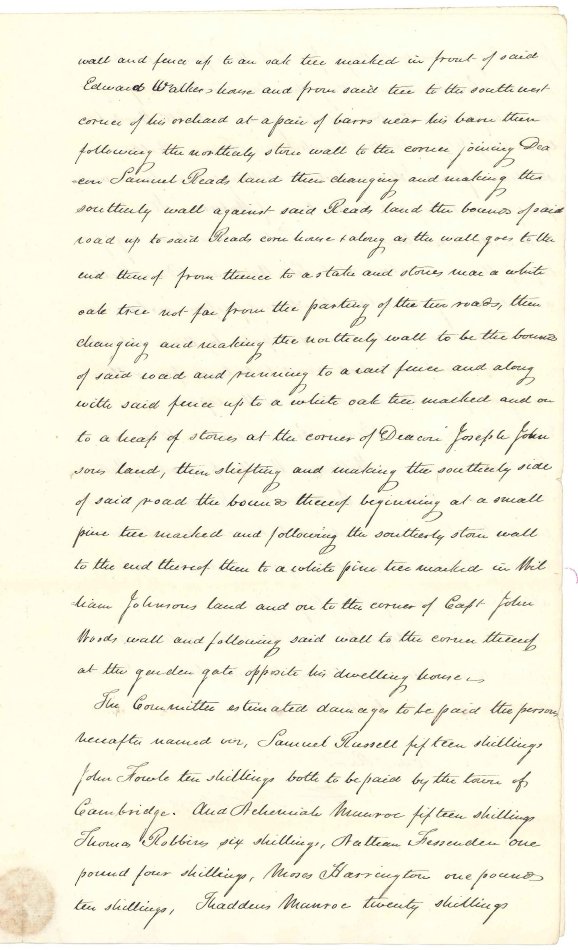 wall and fence up to an oak tree marked in front of said
Edward Walkers house and from said tree to the southwest
corner of his orchard at a pair of barrs near his barn then
following the northerly stone wall to the corner joining Dea
-con Samuel Reads land then changing and making the
southerly wall against said Reads land the bounds of said
road up to said Reads corn house & along as the wall goes to the
end thereof from thence to a stake and stones near a white
oak tree not far from the parting of the two roads, then
changing and making the northerly wall to be the bounds
of said road and running to a rail fence and along
with said fence up to a white oak tree marked and on
to a heap of stones at the corner of Deacon Joseph John
sons land, then shifting and making the southerly side
of said road the bounds thereof beginning at a small
pine tree marked and following the southerly stone wall
to the end thereof then to a white pine tree marked in Wil
-liam Johnsons land and on to the corner of Capt John
Woods wall and following said wall to the corner thereof
at the garden gate opposite his dwelling house
The Committee estimated damages to be paid the persons
hereafter named viz, Samuel Russell fifteen shillings
John Fowle ten shillings both to be paid by the town of
Cambridge. And Nehemiah Munroe fifteen shillings
Thomas Robbins six shillings, Nathan Fessenden one
pound four shillings, Moses Harrington one pound
ten shillings, Thaddeus Munroe twenty shillings